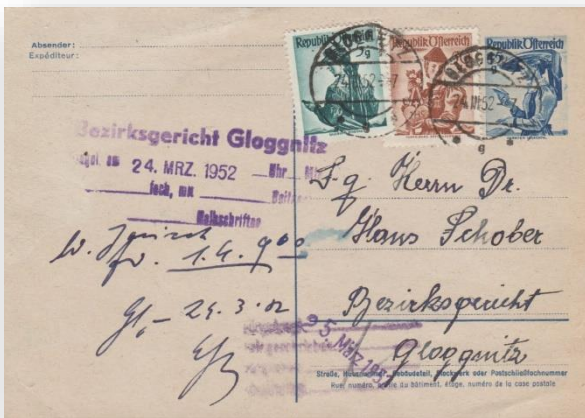 Absender:
Expéditeur:
Republik Österreich
Republik Österreich
Republik Österreich
GLOGGNITZ
24.III.52
GLOGGNITZ
24.III.52
Bezirksgericht Gloggnitz
24. MRZ. 1952 Uhr
fach, mit
Halbschriften
1.4. 900
24.3.52
25. März 1952
S. g. Herrn Dr.
Hans Schober
Bezirksgericht
Gloggnitz
Straße, Hausnummer, Gebäudeteil, Stockwerk oder Postschließfachnummer
Rue, numéro, partie du bâtiment, étage, numéro de la case postale